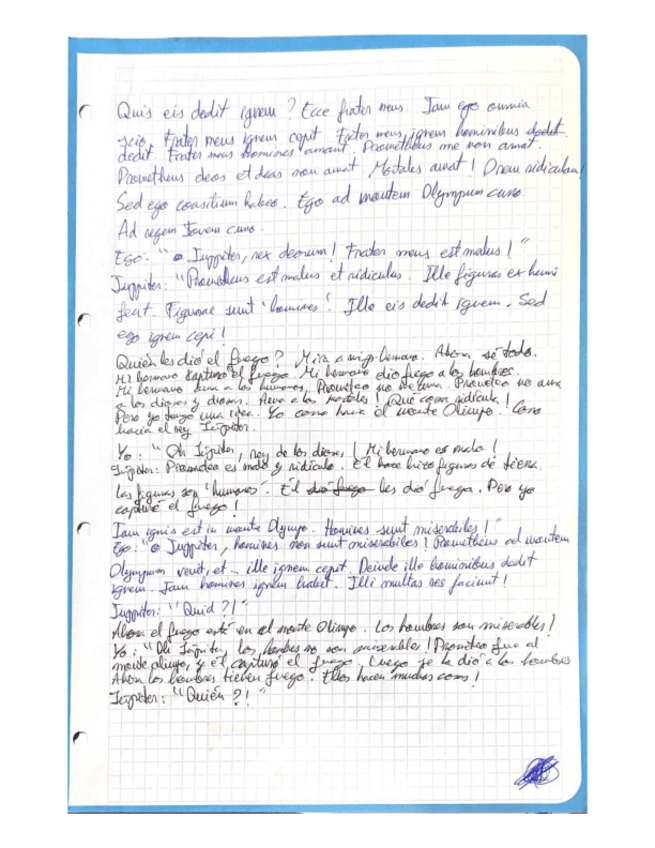 Quis eis dedit ignem? Ecce frater meus. Iam ego omnia
scio. Frater meus ignem cepit. Frater meus ignem hominibus dedit
dedit. Frater meus homines amant. Prometheus me non amat.
Prometheus deos et deas non amat. Mortales amat! O rem ridiculam!
Sed ego consilium habeo. Ego ad montem Olympum curro.
Ad regem Iovem curro
Ego: "O Iuppiter, rex deorum! Frater meus est malus!"
Iuppiter: "Prometheus est malus et ridiculus. Ille figuras ex humi
fecit. Figurae sunt 'homines'. Ille eis dedit ignem. Sed
ego ignem cepi!
Quién les dió el fuego? Mira a mi hermano. Ahora sé todo.
Mi hermano capturó el fuego. Mi hermano dio fuego a los hombres.
Mi hermano ama a los humanos. Prometeo no me ama. Prometeo no ama
a los dioses y diosas. Ama a los mortales! Qué cosa ridícula!
Pero yo tengo una idea. Yo corro hacia el monte Olimpo. Corro
hacia el rey Júpiter.
Yo: "Oh Júpiter, rey de los dioses! Mi hermano es malo!
Júpiter: Prometeo es malo y ridículo. Él hace hizo figuras de tierra.
Las figuras son 'humanos'. Él dió fuego les dió fuego. Pero yo
capturé el fuego!
Iam ignis est in monte Olympo. Homines sunt miserabiles!"
Ego: O Iuppiter, homines non sunt miserabiles! Prometheus ad montem
Olympum venit, et ille ignem cepit. Deinde ille hominibus dedit
ignem. Iam homines ignem habet. Illi multas res faciunt!
Iuppiter: "Quid?!"
Ahora el fuego está en el monte Olimpo. Los hombres son miserables!
Yo: "Oh Júpiter, los hombres no son miserables! Prometeo fue al
monte olimpo, y él capturó el fuego. Luego se lo dió a los hombres
Ahora los hombres tienen fuego. Ellos hacen muchas cosas!
Júpiter: "Quién?!"